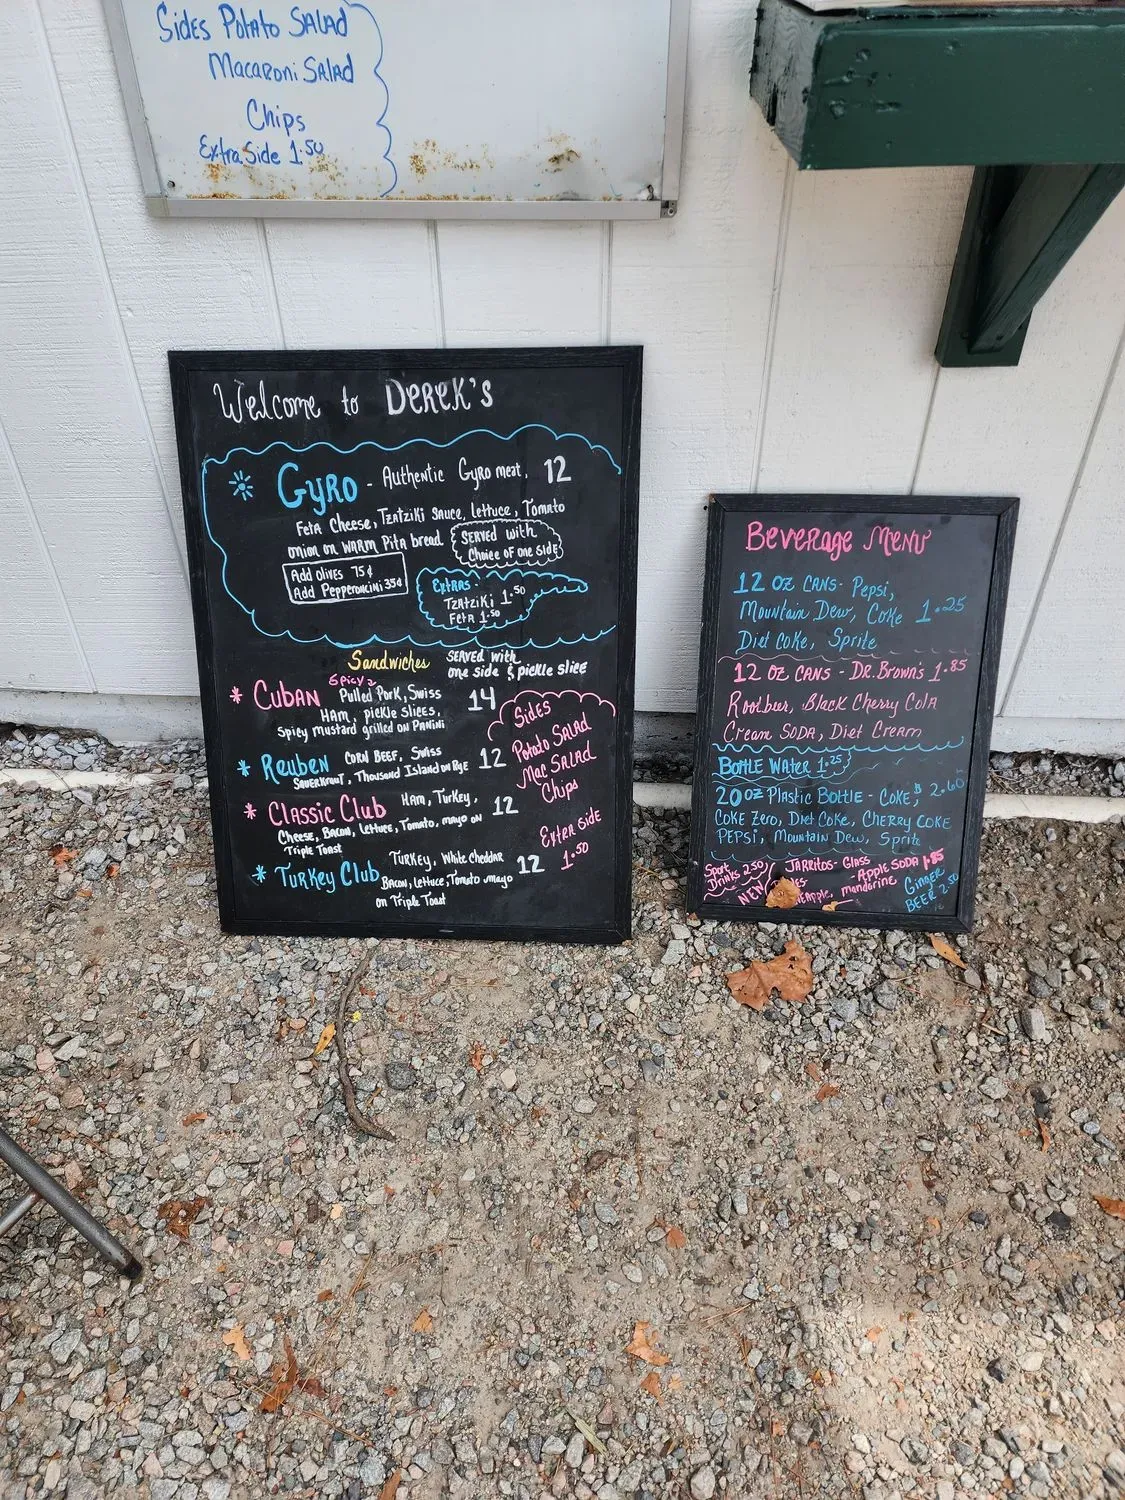 Sides Potato Salad
Macaroni Salad
Chips
Extra Side 1.50
Welcome to Derek's
Gyro - Authentic Gyro meat, 12
Feta Cheese, Tzatziki Sauce, Lettuce, Tomato
onion on warm Pita bread.
Served with
Choice of one side
Add olives 75¢
Add Pepperoncini 35¢
Extras -
Tzatziki 1.50
Feta 1.50
Sandwiches Served with
one side & pickle slice
Spicy
Cuban Pulled Pork, Swiss 14
Ham, pickle slices,
Spicy mustard grilled on Panini
Reuben Corn Beef, Swiss 12
Sauerkraut, Thousand Island on Rye
Classic Club Ham, Turkey, 12
Cheese, Bacon, Lettuce, Tomato, mayo on
Triple Toast
Turkey Club Turkey, White Cheddar 12
Bacon, Lettuce, Tomato mayo
on Triple Toast
Sides
Potato Salad
Mac Salad
Chips
Extra side
1.50
Beverage Menu
12 oz cans - Pepsi,
Mountain Dew, Coke 1.25
Diet Coke, Sprite
12 oz cans - Dr. Brown's 1.85
Rootbeer, Black Cherry Cola
Cream Soda, Diet Cream
Bottle Water 1.25
20 oz Plastic Bottle - Coke, $2.60
Coke Zero, Diet Coke, Cherry Coke
Pepsi, Mountain Dew, Sprite
Sport
Drinks 2.50
New
Jarritos - Glass
- Apple Soda 1.85
mandarine
Ginger
Beer 2.50